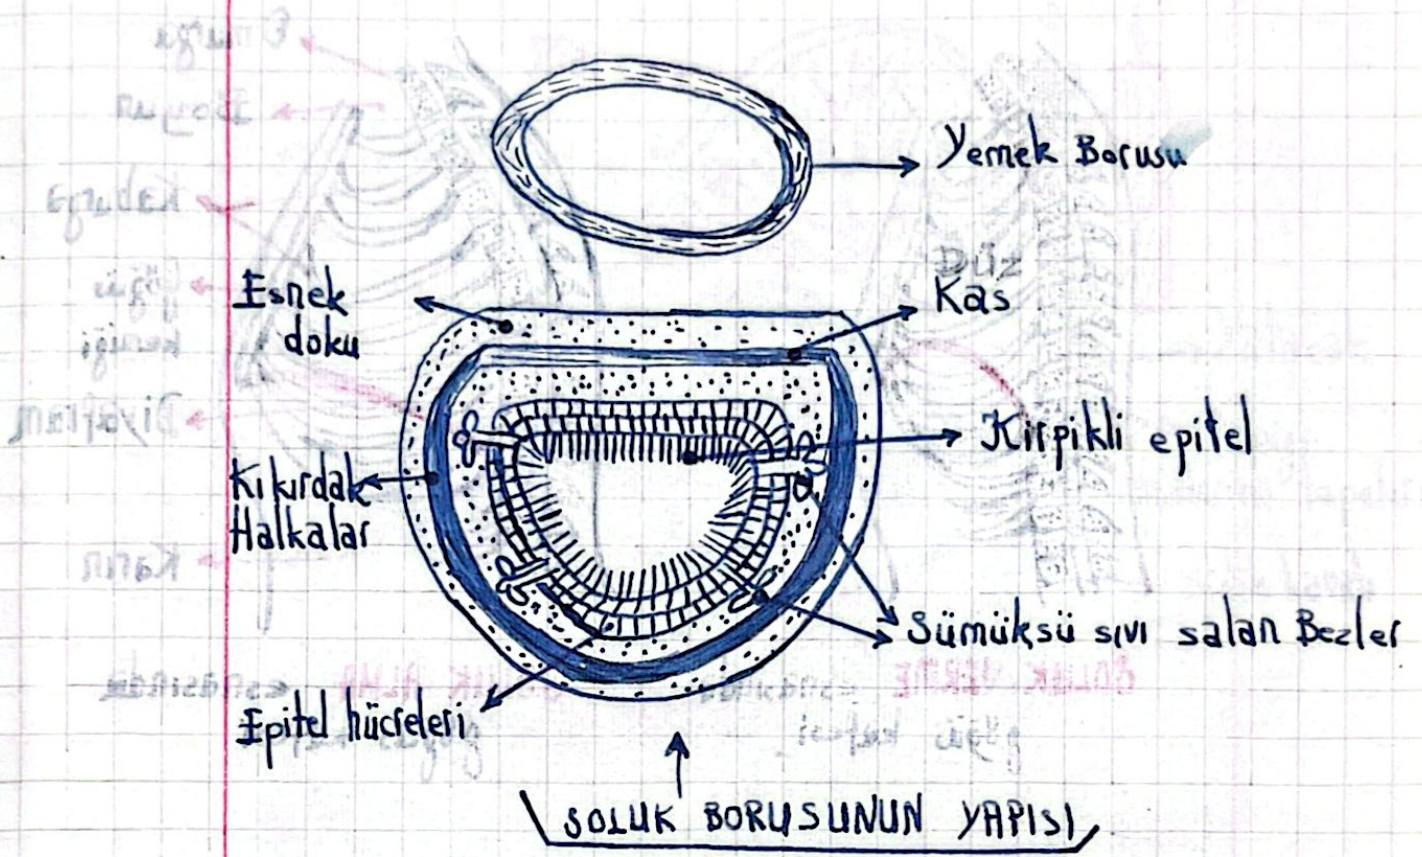 Yemek Borusu
Esnek
doku
Düz
Kas
Kirpikli epitel
Kıkırdak
Halkalar
Sümüksü sıvı salan Bezler
Epitel hücreleri
SOLUK BORUSUNUN YAPISI